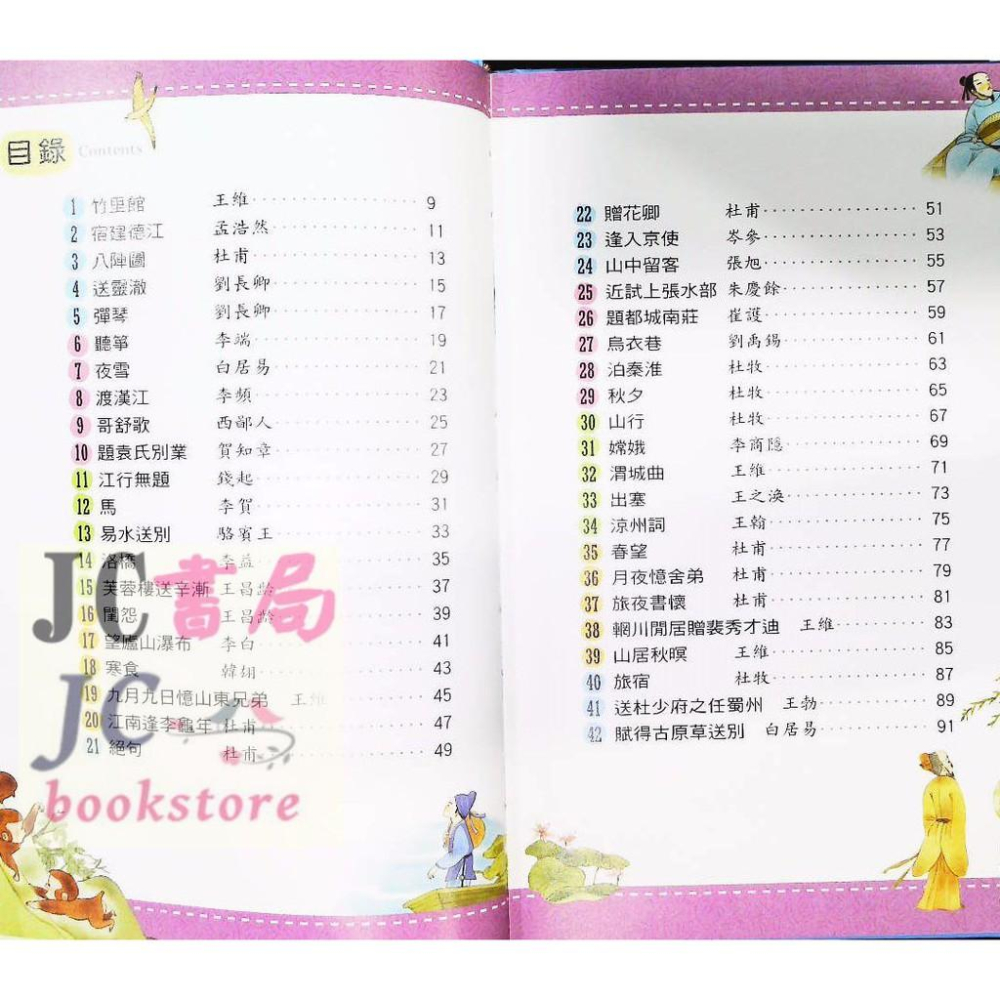 目錄 Contents
1 竹里館 王維 9
2 宿建德江 孟浩然 11
3 八陣圖 杜甫 13
4 送靈澈 劉長卿 15
5 彈琴 劉長卿 17
6 聽箏 李端 19
7 夜雪 白居易 21
8 渡漢江 李頻 23
9 哥舒歌 西鄙人 25
10 題袁氏別業 賀知章 27
11 江行無題 錢起 29
12 馬 李賀 31
13 易水送別 駱賓王 33
14 洛橋 李益 35
15 芙蓉樓送辛漸 王昌齡 37
16 閨怨 王昌齡 39
17 望廬山瀑布 李白 41
18 寒食 韓翃 43
19 九月九日憶山東兄弟 王維 45
20 江南逢李龜年 杜甫 47
21 絕句 杜甫 49
JC書局
JC
bookstore
22 贈花卿 杜甫 51
23 逢入京使 岑參 53
24 山中留客 張旭 55
25 近試上張水部 朱慶餘 57
26 題都城南莊 崔護 59
27 烏衣巷 劉禹錫 61
28 泊秦淮 杜牧 63
29 秋夕 杜牧 65
30 山行 杜牧 67
31 嫦娥 李商隱 69
32 渭城曲 王維 71
33 出塞 王之渙 73
34 涼州詞 王翰 75
35 春望 杜甫 77
36 月夜憶舍弟 杜甫 79
37 旅夜書懷 杜甫 81
38 輞川閒居贈裴秀才迪 王維 83
39 山居秋暝 王維 85
40 旅宿 杜牧 87
41 送杜少府之任蜀州 王勃 89
42 賦得古原草送別 白居易 91